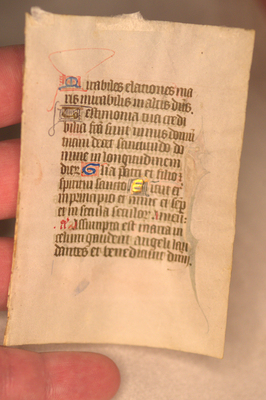 Mirabiles elationes ma
ris mirabilis in altis dñs.
Testimonia tua credi
bilia facta sunt nimis domū
tuam decet sanctitudo do
mine in longitudinem
dierū. Gloria patri et filio:
spiritui sancto. Sicut erat
in principio et nunc et semp
et in secula seculorū amen.
a Assumpta est maria in
celum gaudent angeli lau
dantes et benedicunt dnm.